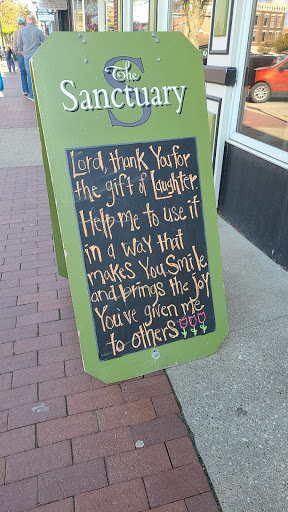 The
S
Sanctuary
Lord, thank You for
the gift of Laughter.
Help me to use it
in a way that
makes You smile
and brings the joy
You've given me
to others